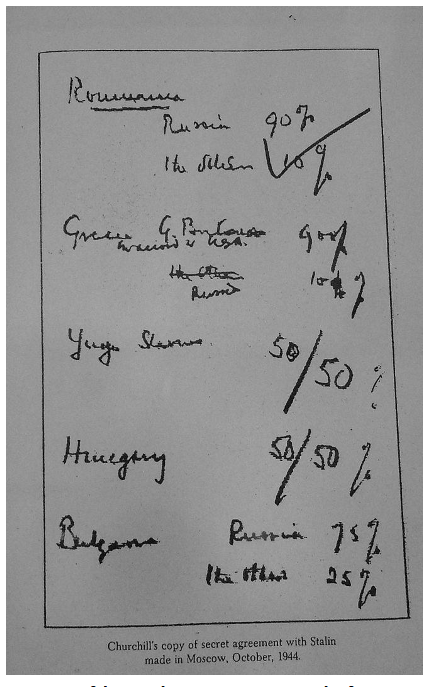 Roumania
Russia 90%
The others 10%
Greece G. Britain 90%
in accord with USA.
the others
Russia 10%
Yugo Slavia 50/50 %
Hungary 50/50 %
Bulgaria Russia 75%
the others 25%
Churchill's copy of secret agreement with Stalin
made in Moscow, October, 1944.